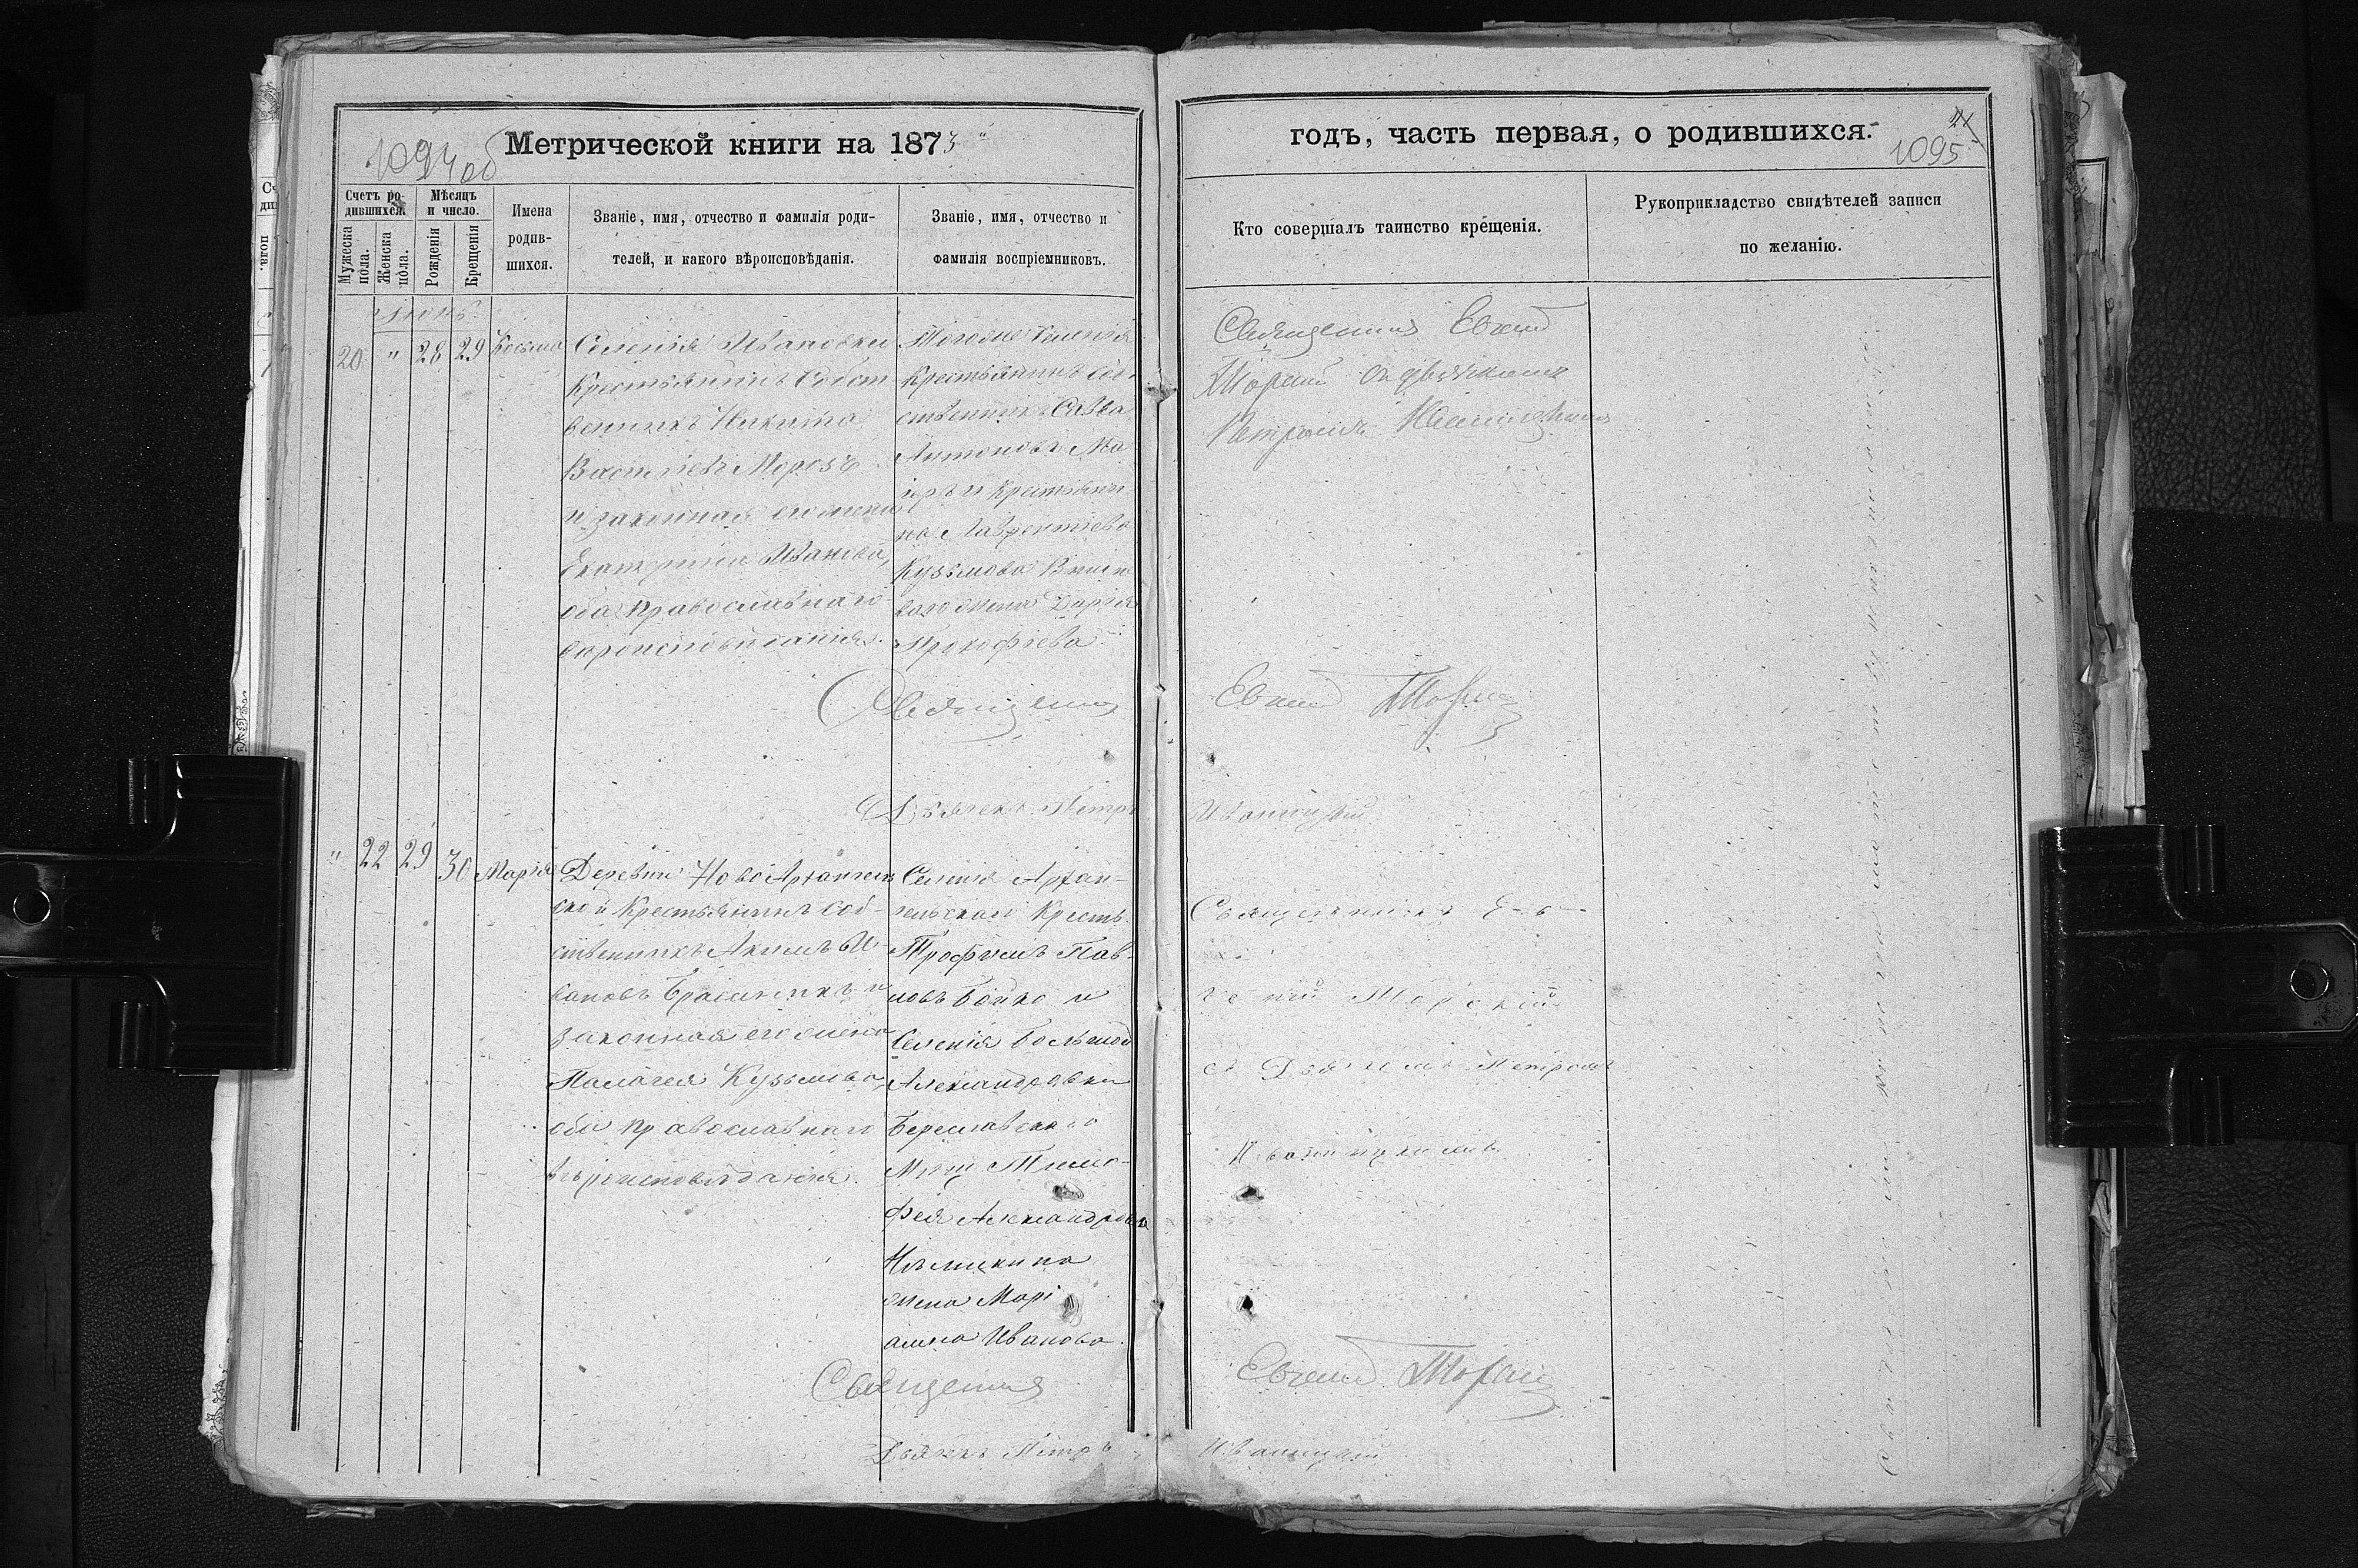 1094 об
Метрической книги на 1873
Счетъ ро-
дившихся.
Мужеска
пола.
Женска
пола.
Мѣсяцъ
и число.
Рожденія
Крещенія
Имена
родив-
шихся.
Званіе, имя, отчество и фамилія роди-
телей, и какого вѣроисповѣданія.
Званіе, имя, отчество и
фамилія воспріемниковъ.
20 " 28 29 Косьма
Селенія Ивановки
Крестьянинъ Собст
венникъ Никита
Васильевъ Морозъ
и законная его жена
Екатерина Иванова,
оба православнаго
Тогоже Селенія
Крестьянинъ Соб-
ственникъ Савва
Антоновъ Ма
Лаврентіева
Кузьмова
жена Дарія
Прокофіева
Священникъ
Дьячекъ Петръ
" 22 29 30 Марія
Деревни Ново Архангель
ской Крестьянинъ Соб-
ственникъ Акимъ И-
вановъ и
законная его жена
Палагея Кузьмова,
оба православнаго
вѣроисповѣданія.
Селенія Архан-
гельскаго Кресть.
Трофимъ Пав-
ловъ Бойко и
Селенія Большой
Александровки
Береславскаго
Мѣщ Тимо-
фея Александрова
жена Марі
анна Иванова.
Священникъ
Дьячекъ Петръ
годъ, часть первая, о родившихся.
21
1095
Кто совершалъ таинство крещенія.
Рукоприкладство свидѣтелей записи
по желанію.
Священникъ Евгеній
Торскій съ дьячкомъ
Петромъ Иваницкимъ
Евгеній Торскій
Иваницкій
Священникъ Ев-
геній Торскій
съ Дьячкомъ Петромъ
Иваницкимъ
Евгеній Торскій
Иваницкій